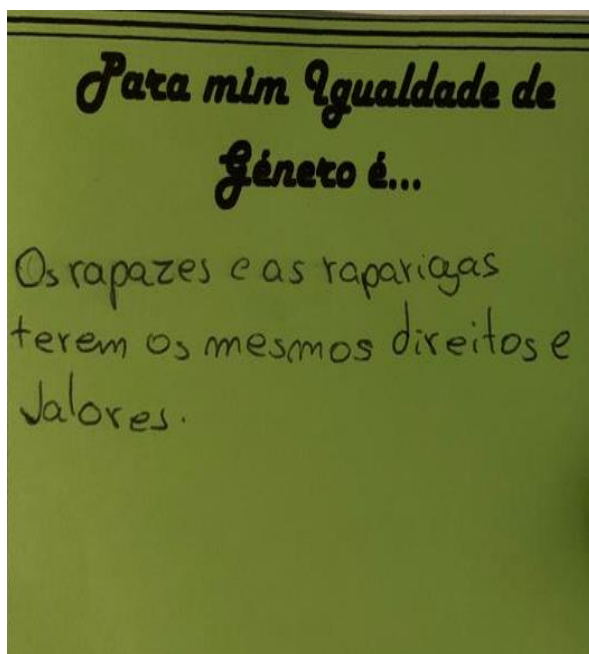 Para mim Igualdade de
Género é...
Os rapazes e as raparigas
terem os mesmos direitos e
Valores.